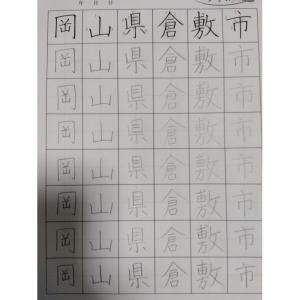 年 月 日
岡山県倉敷市
岡山県倉敷市
岡山県倉敷市
岡山県倉敷市
岡山県倉敷市
岡山県倉敷市
岡山県倉敷市
岡山県倉敷市